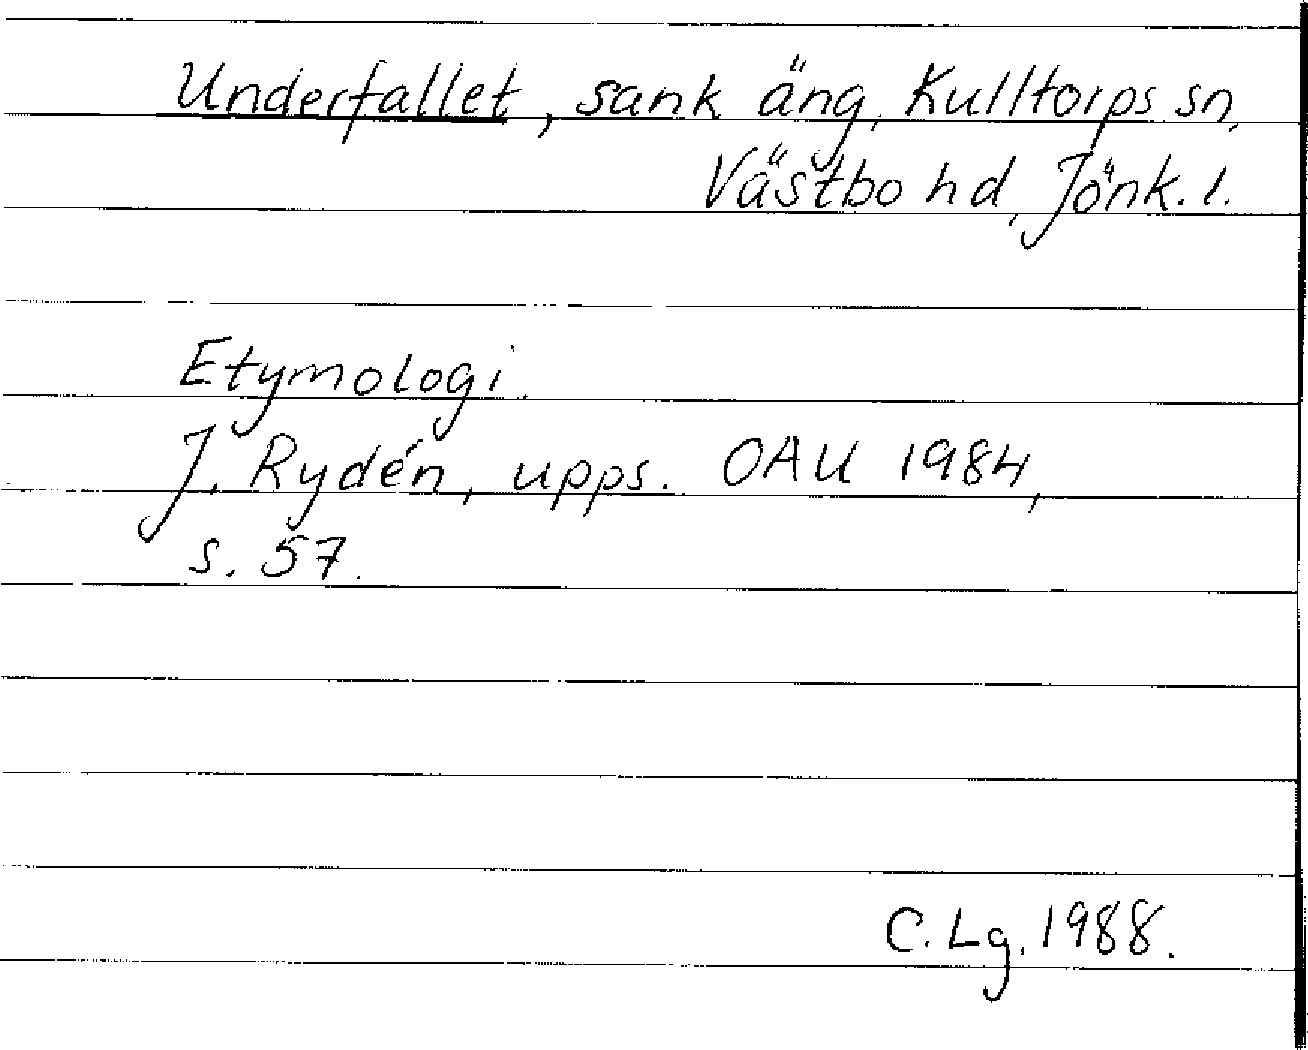 Underfallet, sank äng, Kulltorps sn,
Västbo hd, Jönk. l.
Etymologi.
J. Rydén, upps. OAU 1984,
s. 57.
C. Lg. 1988.